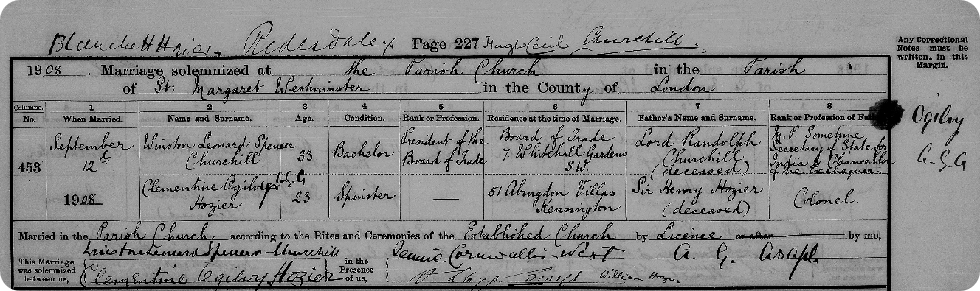 Blanche H Hozier. Redesdale Page 227 Hugh Cecil Churchill.
Any Correctional
Notes must be
written in this
Margin.
1908 Marriage solemnized at the Parish Church in the Parish
of St. Margaret Westminster in the County of London
Columns. 1 2 3 4 5 6 7 8
No. When Married. Name and Surname. Age. Condition. Rank or Profession. Residence at the time of Marriage. Father's Name and Surname. Rank or Profession of
453
September
12th
1908
Winston Leonard Spencer
Churchill
33
Bachelor
President of the
Board of Trade
Board of Trade
7 Whitehall Gardens
S.W.
Lord Randolph
Churchill
(deceased)
Sometime
Secretary of State for
India & Chancellor
of the Exchequer
Clementine Ogilvy
Hozier
23
Spinster
51 Abingdon Villas
Kensington
Sir Henry Hozier
(deceased)
Colonel
Ogilvy
A.G.A
Married in the Parish Church according to the Rites and Ceremonies of the Established Church by Licence by me,
This Marriage
was solemnized
between us,
Winston Leonard Spencer Churchill
Clementine Ogilvy Hozier
in the
Presence
of us,
Jennie Cornwallis West
A. G. Asaph